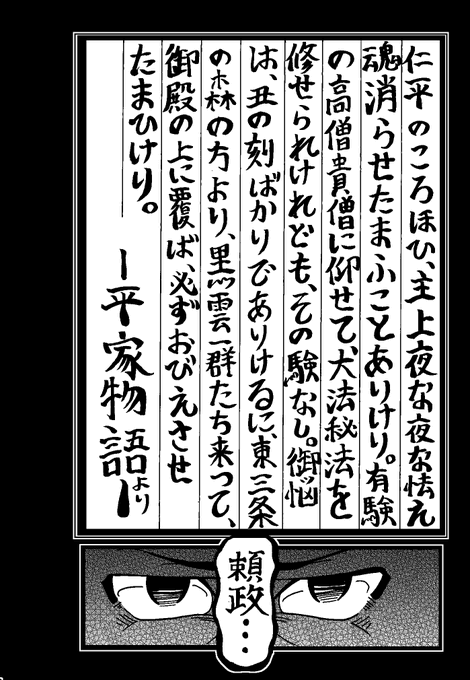 仁平のころほひ、主上夜な夜な怯え
魂消らせたまふことありけり。有験
の高僧貴僧に仰せて、大法秘法を
修せられけれども、その験なし。御悩
は、丑の刻ばかりでありけるに、東三条
の森の方より、黒雲一群たち来って、
御殿の上に覆ば、必ずおびえさせ
たまひけり。
ー平家物語よりー
頼政…